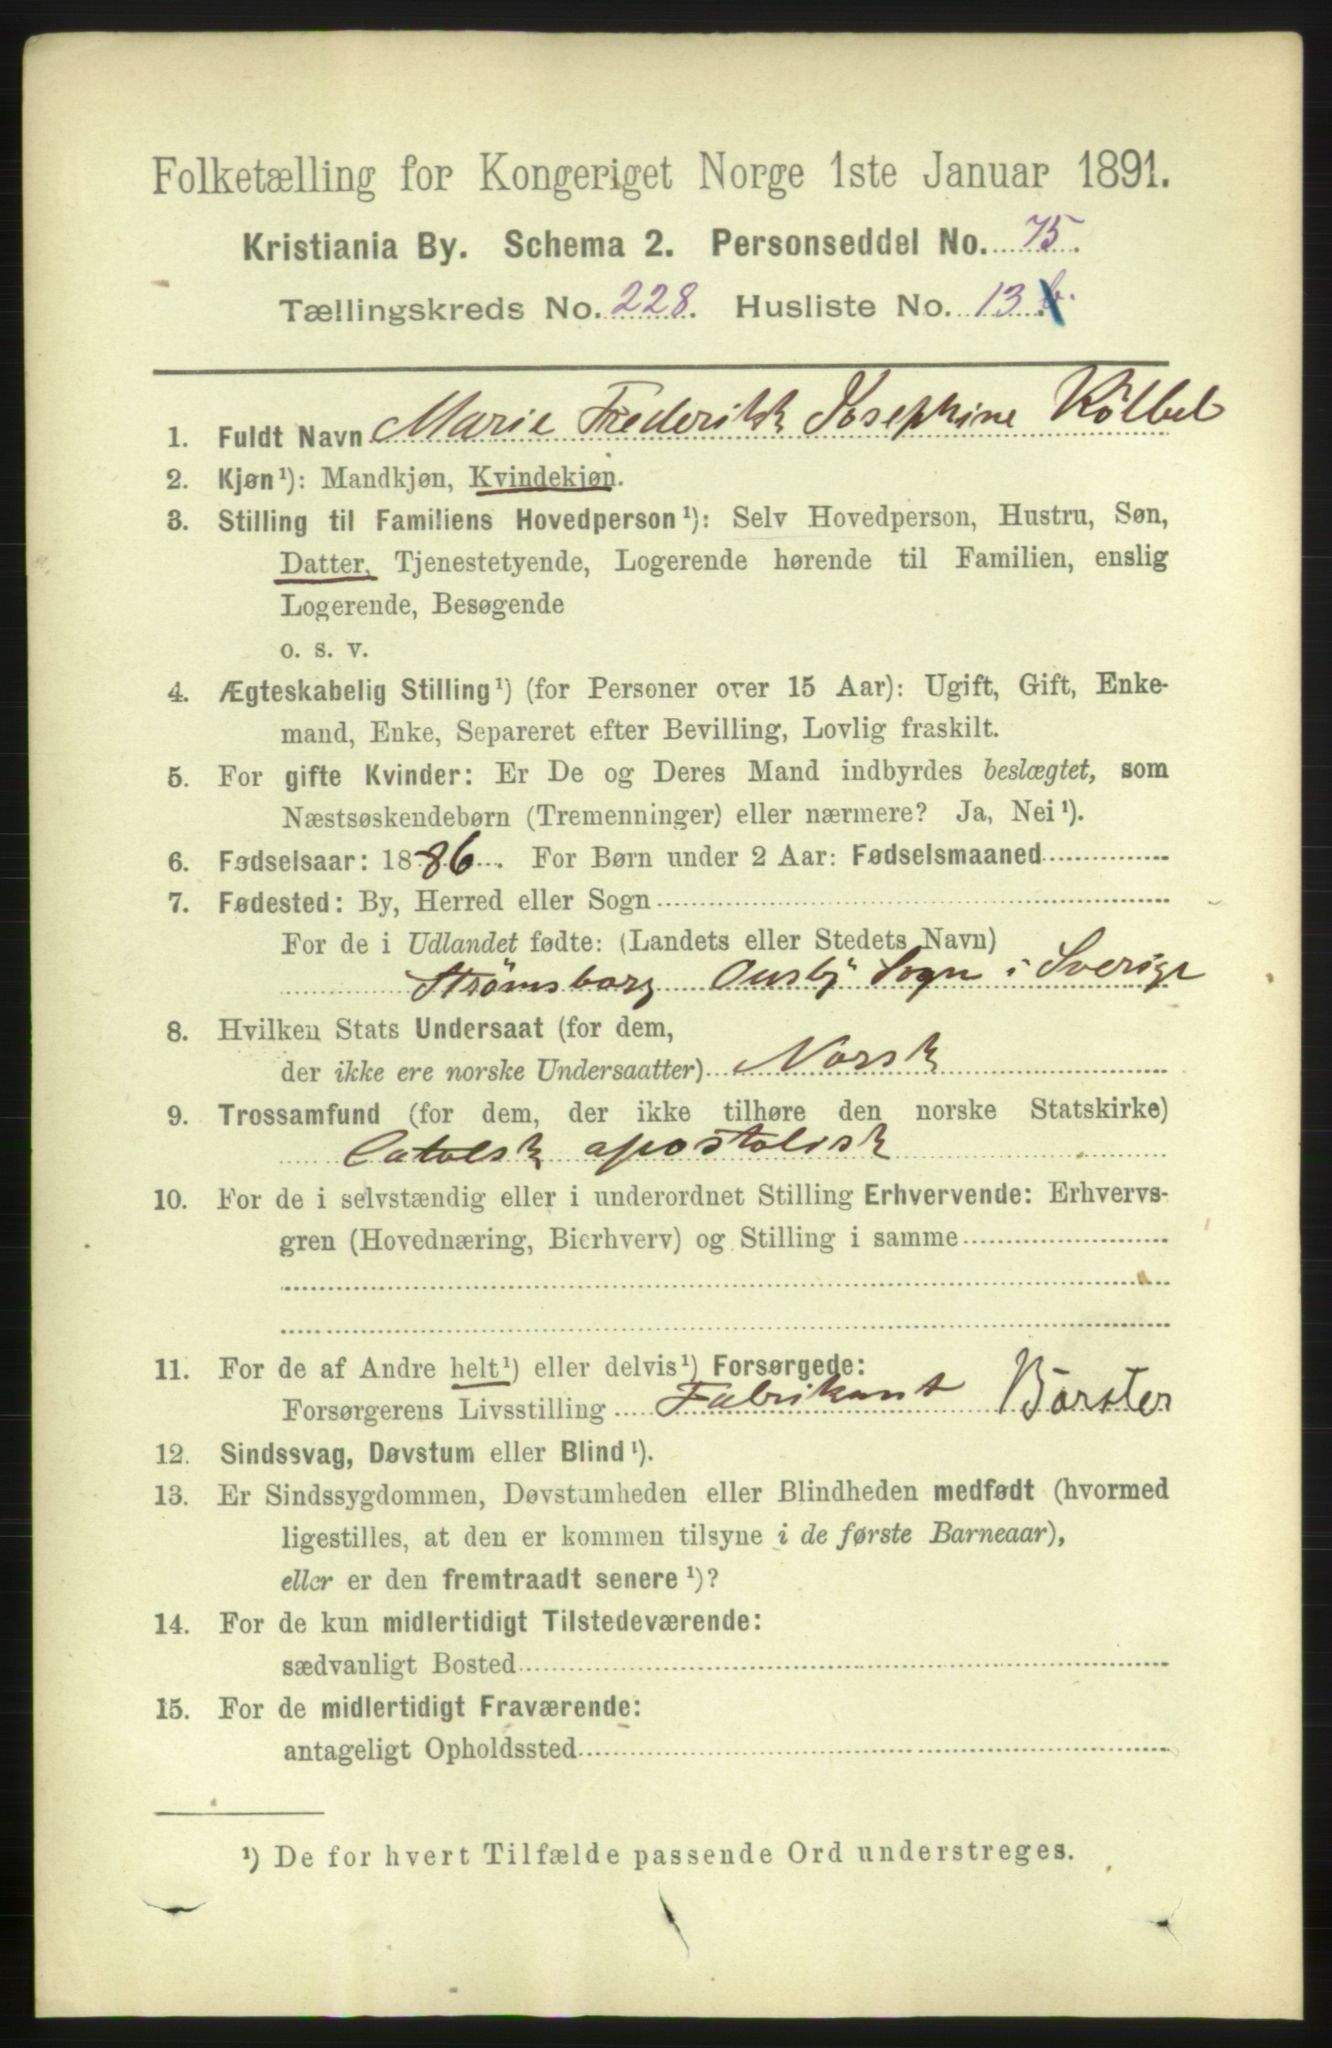 Folketælling for Kongeriget Norge 1ste Januar 1891.
Kristiania By. Schema 2. Personseddel No. 75.
Tællingskreds No. 228. Husliste No. 13 b.
1. Fuldt Navn Marie Frederikk Josephine Kölbel
2. Kjøn¹): Mandkjøn, Kvindekjøn.
3. Stilling til Familiens Hovedperson¹): Selv Hovedperson, Hustru, Søn,
Datter, Tjenestetyende, Logerende hørende til Familien, enslig
Logerende, Besøgende
o. s. v.
4. Ægteskabelig Stilling¹) (for Personer over 15 Aar): Ugift, Gift, Enke-
mand, Enke, Separeret efter Bevilling, Lovlig fraskilt.
5. For gifte Kvinder: Er De og Deres Mand indbyrdes beslægtet, som
Næstsøskendebørn (Tremenninger) eller nærmere? Ja, Nei¹).
6. Fødselsaar: 1886. For Børn under 2 Aar: Fødselsmaaned
7. Fødested: By, Herred eller Sogn
For de i Udlandet fødte: (Landets eller Stedets Navn)
Strømsborg Ousbÿ Sogn i Sverige
8. Hvilken Stats Undersaat (for dem,
der ikke ere norske Undersaatter) Norsk
9. Trossamfund (for dem, der ikke tilhøre den norske Statskirke)
Catolsk apostolisk
10. For de i selvstændig eller i underordnet Stilling Erhvervende: Erhvervs-
gren (Hovednæring, Bierhverv) og Stilling i samme
11. For de af Andre helt¹) eller delvis¹) Forsørgede:
Forsørgerens Livsstilling Fabrikant Börster
12. Sindssvag, Døvstum eller Blind¹).
13. Er Sindssygdommen, Døvstumheden eller Blindheden medfødt (hvormed
ligestilles, at den er kommen tilsyne i de første Barneaar),
eller er den fremtraadt senere¹)?
14. For de kun midlertidigt Tilstedeværende:
sædvanligt Bosted
15. For de midlertidigt Fraværende:
antageligt Opholdssted
¹) De for hvert Tilfælde passende Ord understreges.